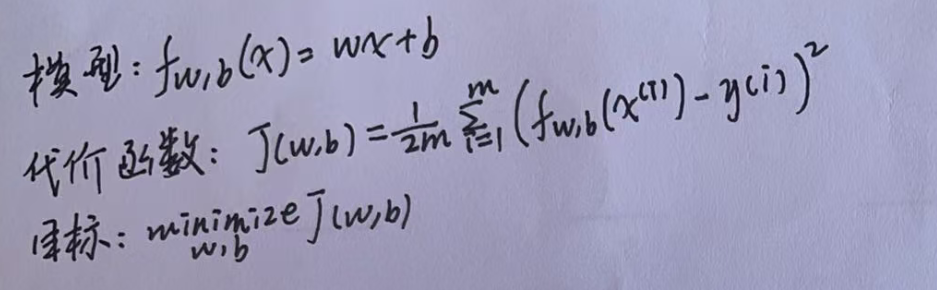 模型：f_{w,b}(x) = wx+b
代价函数：J(w,b) = \frac{1}{2m} \sum_{i=1}^{m} (f_{w,b}(x^{(i)}) - y^{(i)})^2
目标：minimize_{w,b} J(w,b)